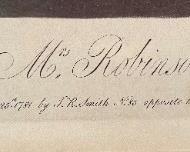 Mrs Robinso
1781 by J.R. Smith No. 83 opposite